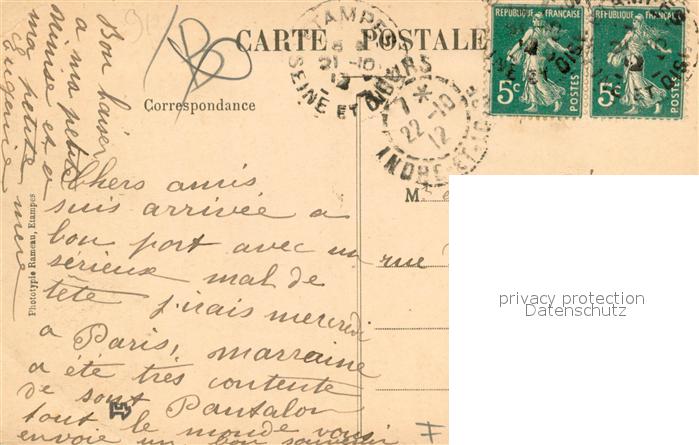 CARTE POSTALE
Correspondance
REPUBLIQUE FRANÇAISE
5c
POSTES
REPUBLIQUE FRANÇAISE
5c
POSTES
ETAMPES
21-10
12
SEINE ET OISE
TOURS
7*
22-10
12
INDRE-ET-
M
rue
Bon baiser
a ma petite
Mimise et a
ma petite
Eugenie
mere
Phototypie Rameau, Etampes
Chers amis
suis arrivée a
bon port avec un
sérieux mal de
tête j'irais mercredi
a Paris, marraine
a été très contente
de sont Pantalon
tout le monde vous
envoie un bon souvenir
privacy protection
Datenschutz